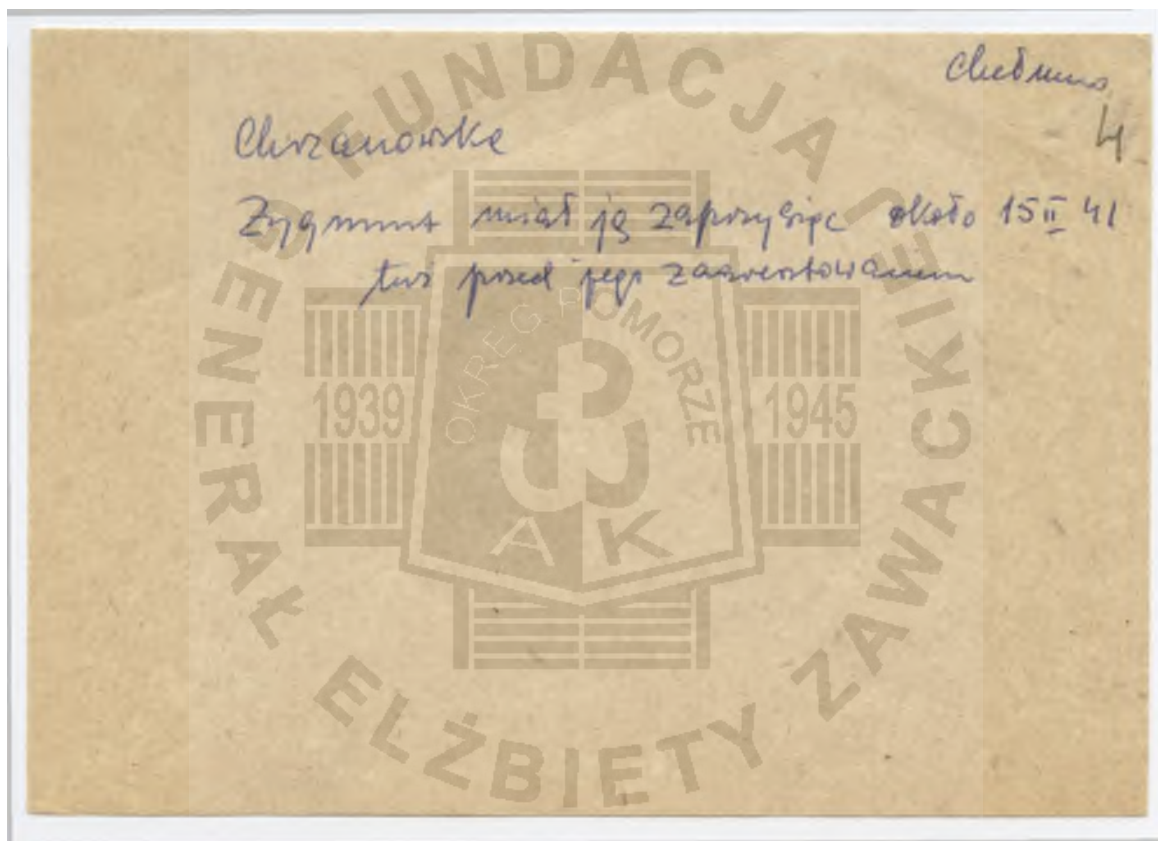 Chełmno
4
Chrzanowska
Zygmunt miał ją zaprzysiąc około 15 II 41
tuż przed jego zaaresztowaniem
FUNDACJA
GENERAŁ ELŻBIETY ZAWACKIEJ
OKRĘG POMORZE
1939
1945
AK